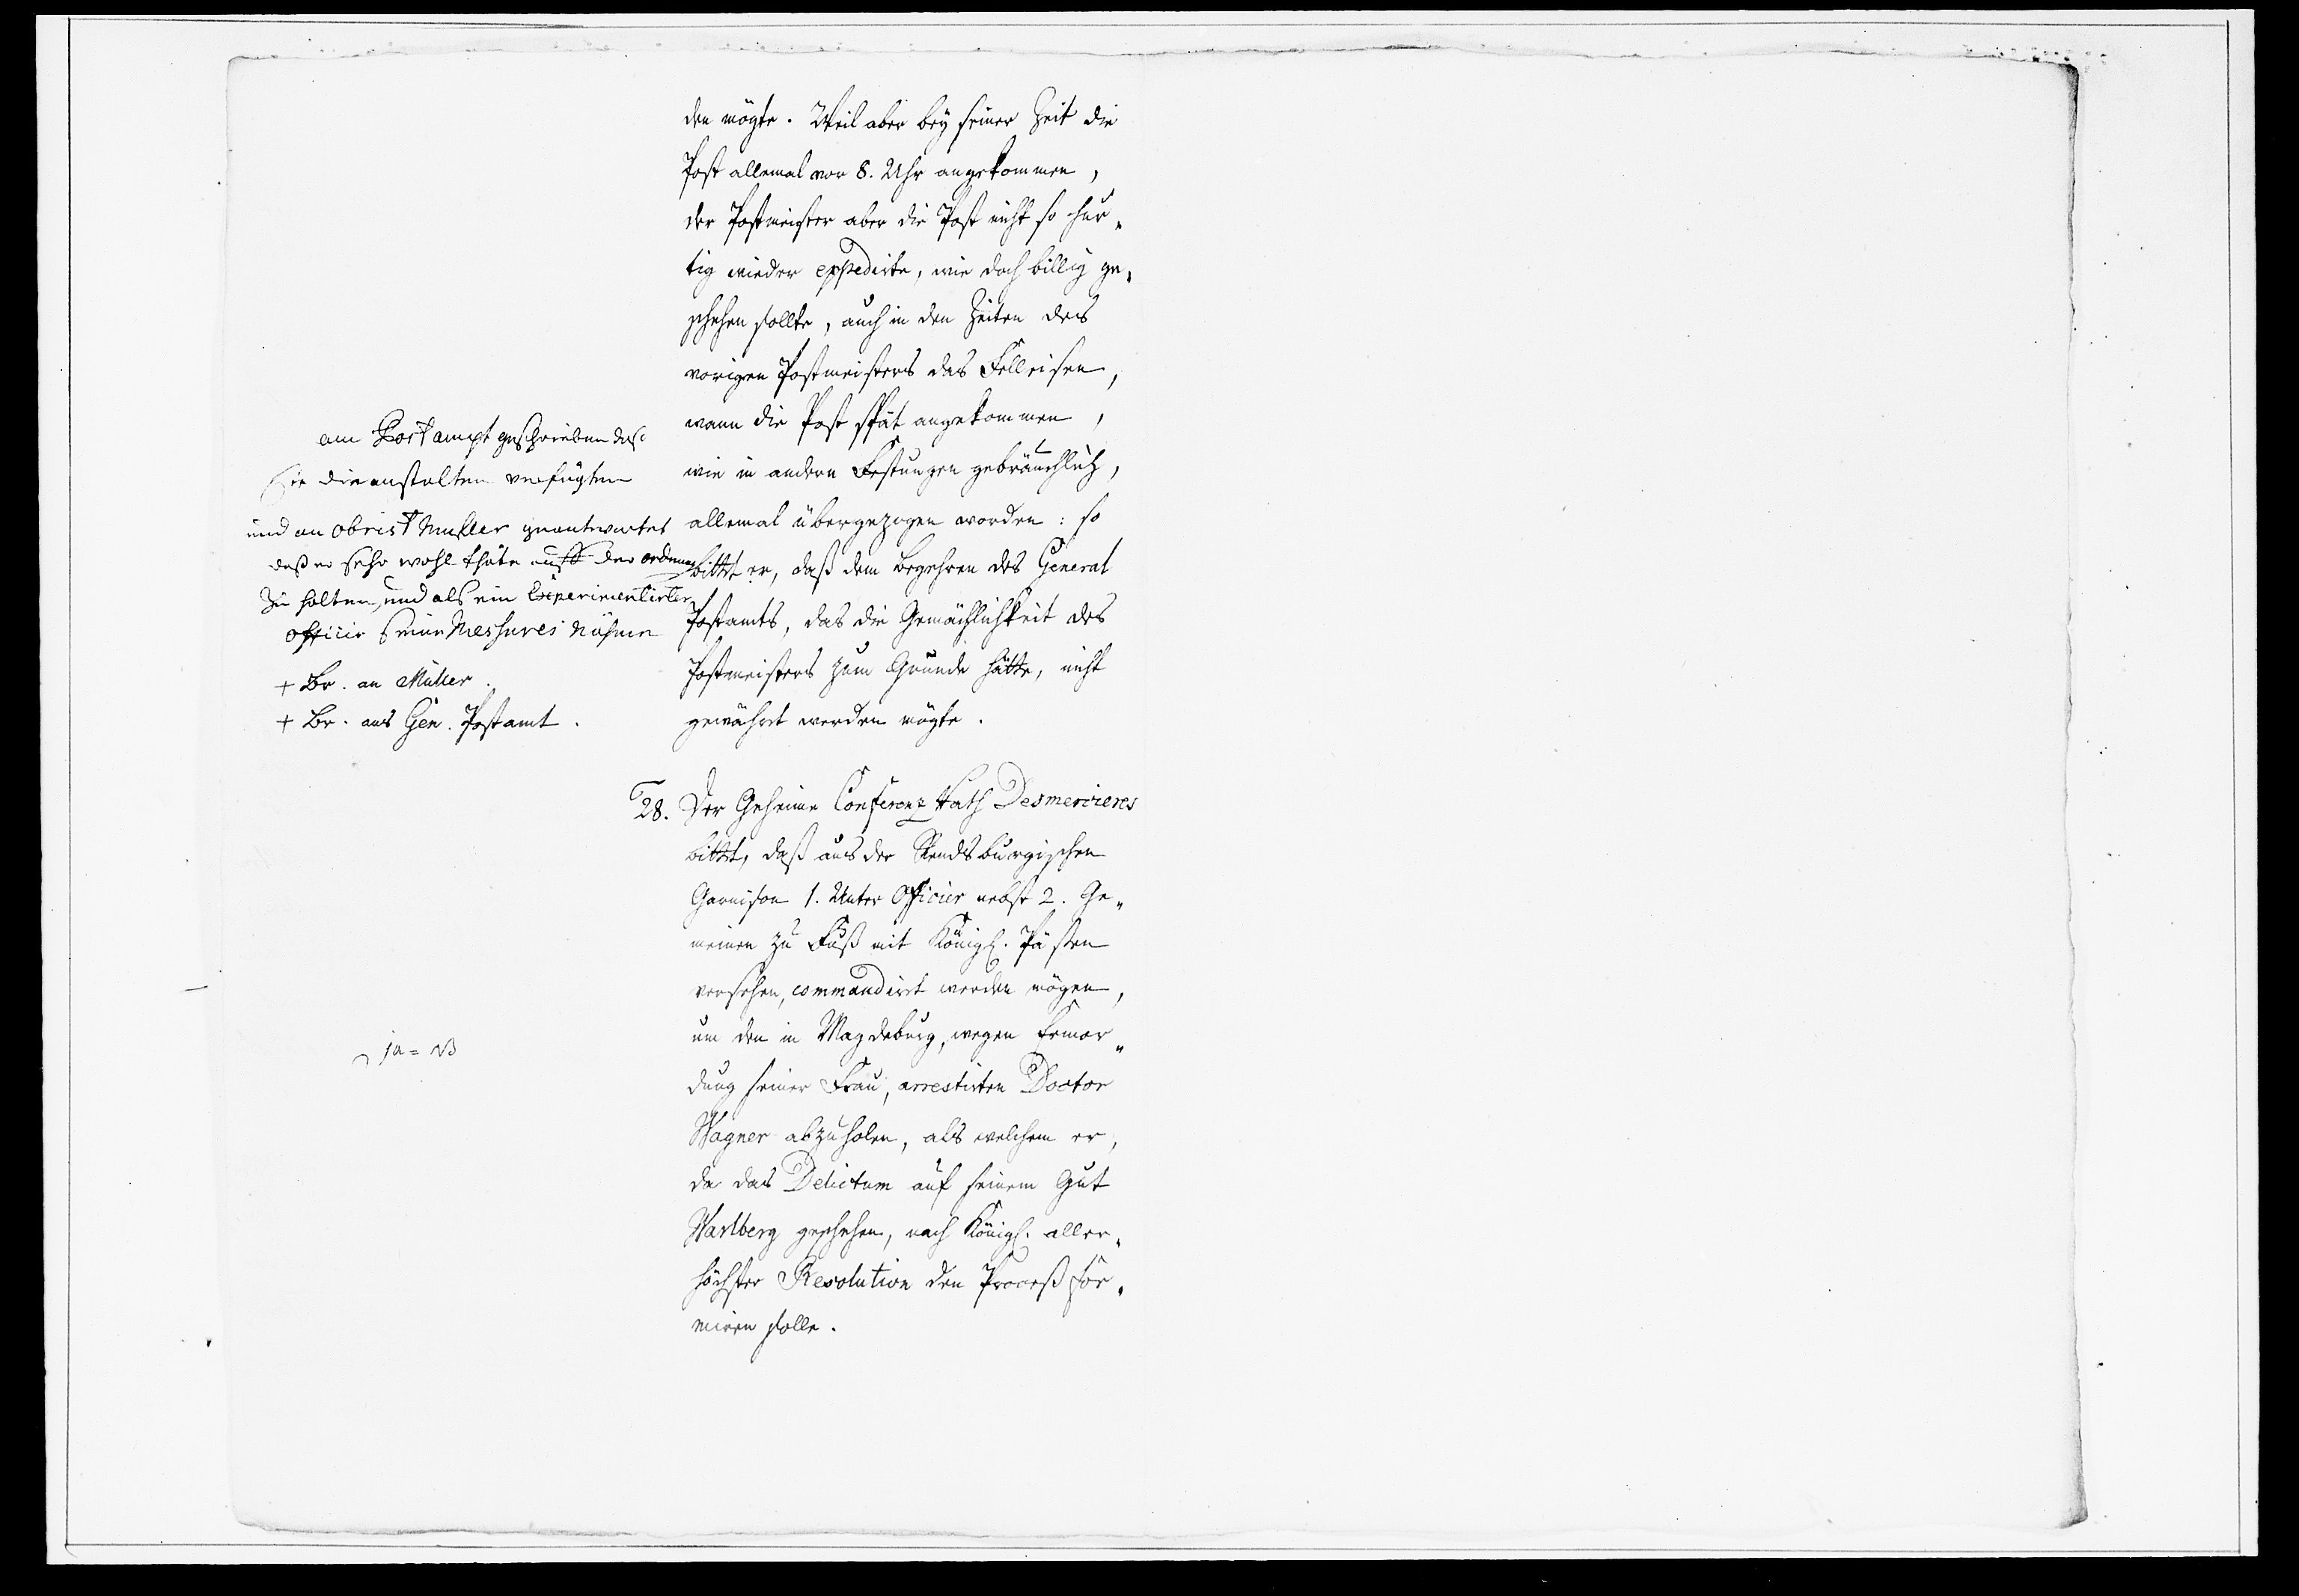 den mögte. Weil aber bey seiner Zeit die
Post allemal vor 8. Uhr angekommen,
der Postmeister aber die Post nicht so hur„
tig wieder expedirte, wie doch billig ge„
schehen sollte, auch in den Zeiten des
vorigen Postmeisters das Felleisen,
wann die Post spät angekommen,
wie in andern Festungen gebräuchlich,
allemal übergezogen worden: so
bittet er, daß dem Begehren des General
Postamts, das die Gemächlichkeit des
Postmeisters zum Grunde hätte, nicht
gewährt werden mögte.
am Postampt geschrieben das
Sie die anstalten verfügten
und an Obrist Muller geantwortet
daß er sehr wohl thäte auff der ordnung
zu halten, und als ein Experimentirter
officir seine Messures nähme
+ Br. an Müller.
+ Br. ans Gen. Postamt.
28. Der Geheime Conferenz Rath Desmercieres
bittet, daß aus der Rendsburgischen
Garnison 1. Unter Officier nebst 2. Ge„
meinen zu Fuß mit Königl. Päßen
versehen, commandirt werden mögen,
um den in Magdeburg, wegen Ermor„
dung seiner Frau, arrestirten Doctor
Wagner abzuholen, als welchem er,
da das Delictum auf seinem Gut
Warlberg geschehen, nach Königl. aller„
höchster Resolution den Proceß for„
miren solle.
ja = NB